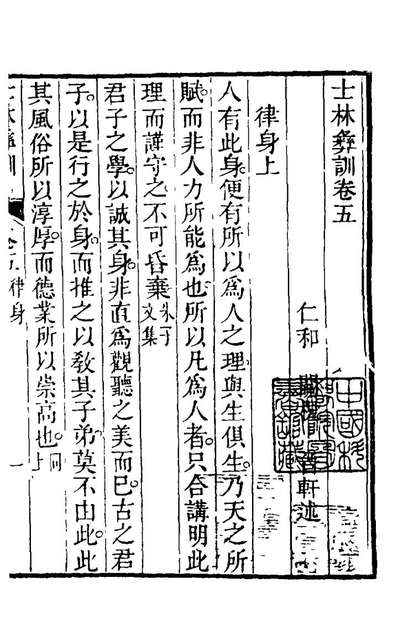 士林彝訓卷五
仁和 軒述
律身上
人有此身便有所以為人之理與生俱生乃天之所
賦而非人力所能為也所以凡為人者只合講明此
理而謹守之不可昏棄朱子文集
君子之學以誠其身非直為觀聽之美而已古之君
子以是行之於身而推之以教其子弟莫不由此此
其風俗所以淳厚而德業所以崇高也同上
士林彝訓 卷五律身 一